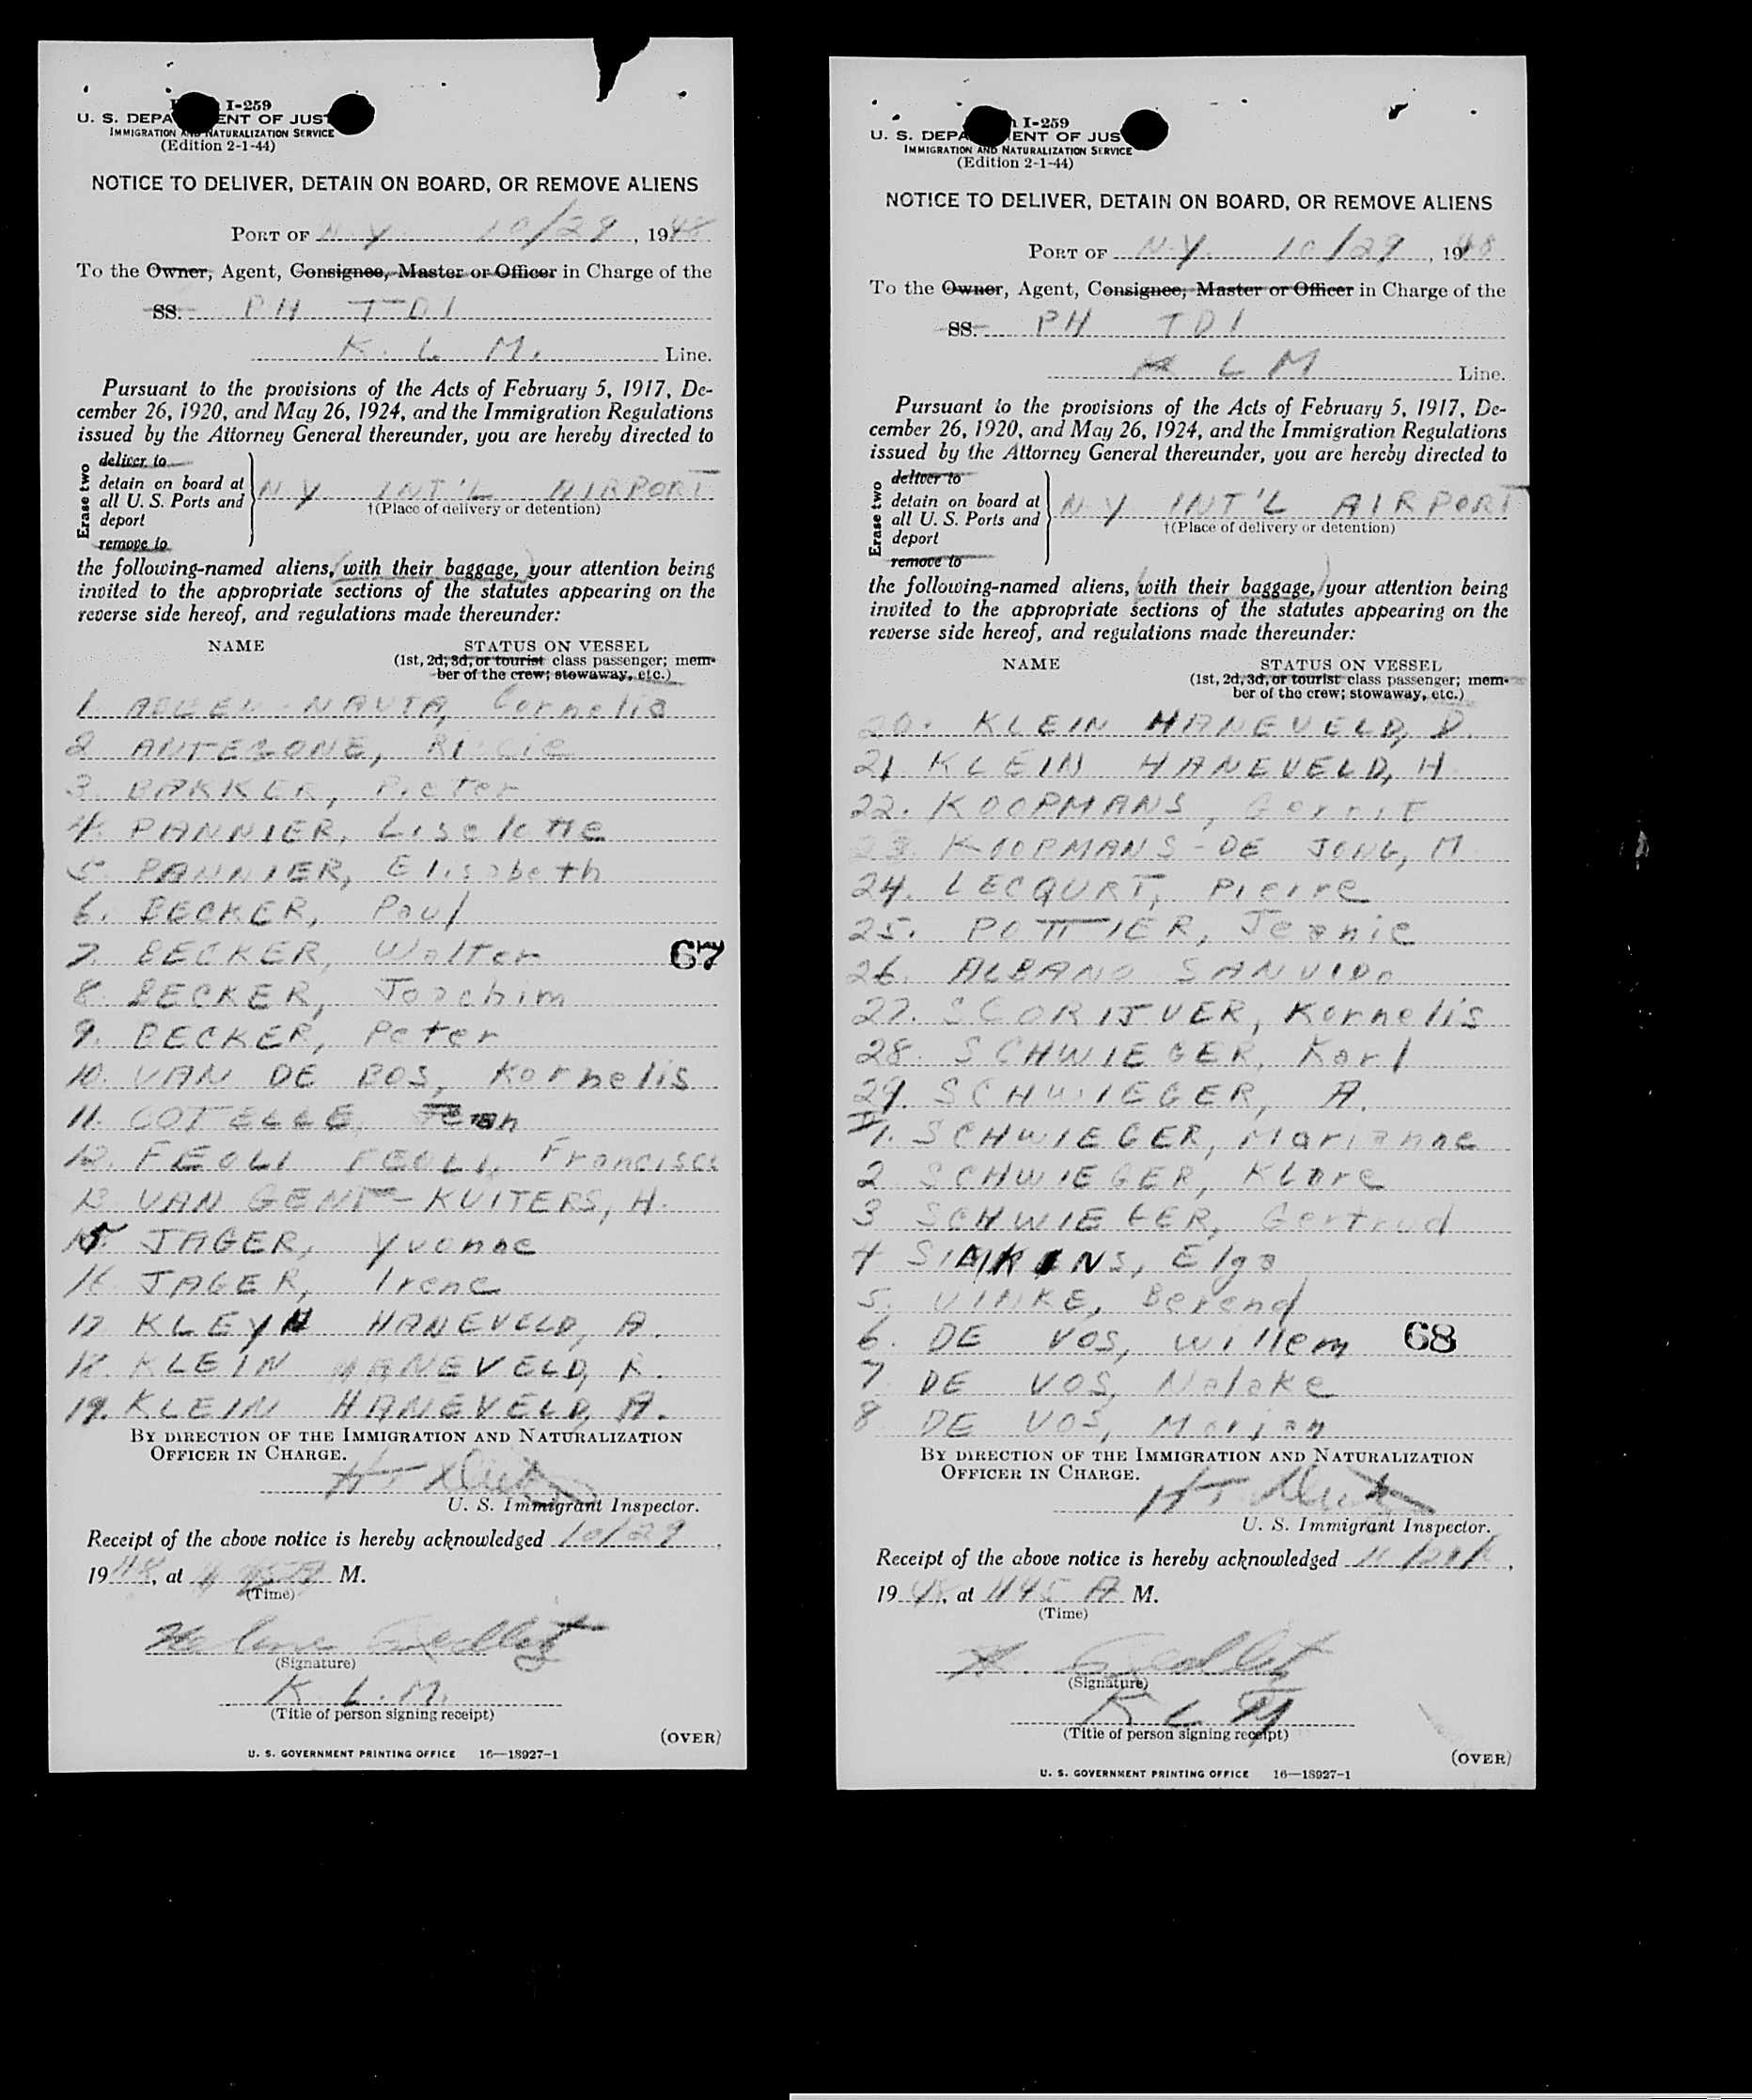 I-259
U. S. DEPA ENT OF JUST
IMMIGRATION AND NATURALIZATION SERVICE
(Edition 2-1-44)
NOTICE TO DELIVER, DETAIN ON BOARD, OR REMOVE ALIENS
PORT OF N.Y. 10/29, 1948
To the Owner, Agent, Consignee, Master or Officer in Charge of the
SS. PH TDI
K. L. M. Line.
Pursuant to the provisions of the Acts of February 5, 1917, De-
cember 26, 1920, and May 26, 1924, and the Immigration Regulations
issued by the Attorney General thereunder, you are hereby directed to
Erase two
deliver to
detain on board at
all U. S. Ports and
deport
remove to
N Y INT'L AIRPORT
†(Place of delivery or detention)
the following-named aliens, (with their baggage,) your attention being
invited to the appropriate sections of the statutes appearing on the
reverse side hereof, and regulations made thereunder:
NAME STATUS ON VESSEL
(1st, 2d, 3d, or tourist class passenger; mem-
ber of the crew; stowaway, etc.)
1. NAUTA, Cornelia
2 ANTEGONE,
3. BAKKER, Pieter
4. PANNIER, Liselotte
5. PANNIER, Elisabeth
6. BECKER, Paul
7. BECKER, Walter
67
8. BECKER, Joachim
9. BECKER, Peter
10. VAN DE BOS, Kornelis
11. COTELLE, Jean
12. FEOLI FEOLI, Francisco
13 VAN GENT-KUITERS, H.
15. JAGER, Yvonne
16. JAGER, Irene
17 KLEYN HANEVELD, A.
18. KLEIN HANEVELD, R.
19. KLEIN HANEVELD, A.
BY DIRECTION OF THE IMMIGRATION AND NATURALIZATION
OFFICER IN CHARGE.
U. S. Immigrant Inspector.
Receipt of the above notice is hereby acknowledged 10/29,
1948, at A M.
(Time)
(Signature)
K L. M.
(Title of person signing receipt)
(OVER)
U. S. GOVERNMENT PRINTING OFFICE 16—18927-1
I-259
U. S. DEPA ENT OF JUS
IMMIGRATION AND NATURALIZATION SERVICE
(Edition 2-1-44)
NOTICE TO DELIVER, DETAIN ON BOARD, OR REMOVE ALIENS
PORT OF N.Y. 10/29, 1948
To the Owner, Agent, Consignee, Master or Officer in Charge of the
SS. PH TDI
K L M Line.
Pursuant to the provisions of the Acts of February 5, 1917, De-
cember 26, 1920, and May 26, 1924, and the Immigration Regulations
issued by the Attorney General thereunder, you are hereby directed to
Erase two
deliver to
detain on board at
all U. S. Ports and
deport
remove to
N Y INT'L AIRPORT
†(Place of delivery or detention)
the following-named aliens, (with their baggage,) your attention being
invited to the appropriate sections of the statutes appearing on the
reverse side hereof, and regulations made thereunder:
NAME STATUS ON VESSEL
(1st, 2d, 3d, or tourist class passenger; mem-
ber of the crew; stowaway, etc.)
20. KLEIN HANEVELD, D.
21 KLEIN HANEVELD, H.
22. KOOPMANS, Gerrit
23. KOOPMANS-DE JONG, M
24. LECQURT, Pierre
25. POTTIER, Jeanie
26. ALBANO SANVIDO
27. SCORIJVER, Kornelis
28. SCHWIEGER, Karl
29. SCHWIEGER, A.
II
1. SCHWIEGER, Marianne
2 SCHWIEGER, Klare
3 SCHWIEGER, Gertrud
4 Elga
5. VINKE, Berend
6. DE VOS, Willem
68
7 DE VOS, Nalake
8 DE VOS, Marjan
BY DIRECTION OF THE IMMIGRATION AND NATURALIZATION
OFFICER IN CHARGE.
U. S. Immigrant Inspector.
Receipt of the above notice is hereby acknowledged
1948, at 1145 A M.
(Time)
(Signature)
K L M
(Title of person signing receipt)
(OVER)
U. S. GOVERNMENT PRINTING OFFICE 16—18927-1